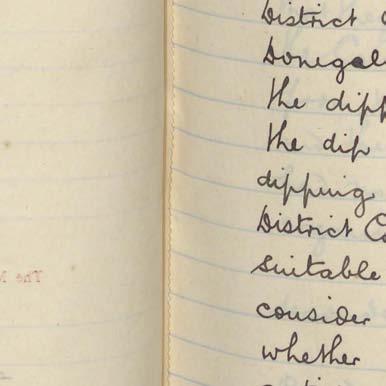 District
Donegal
the dipp
the dip
dipping
District Co
suitable
consider
whether